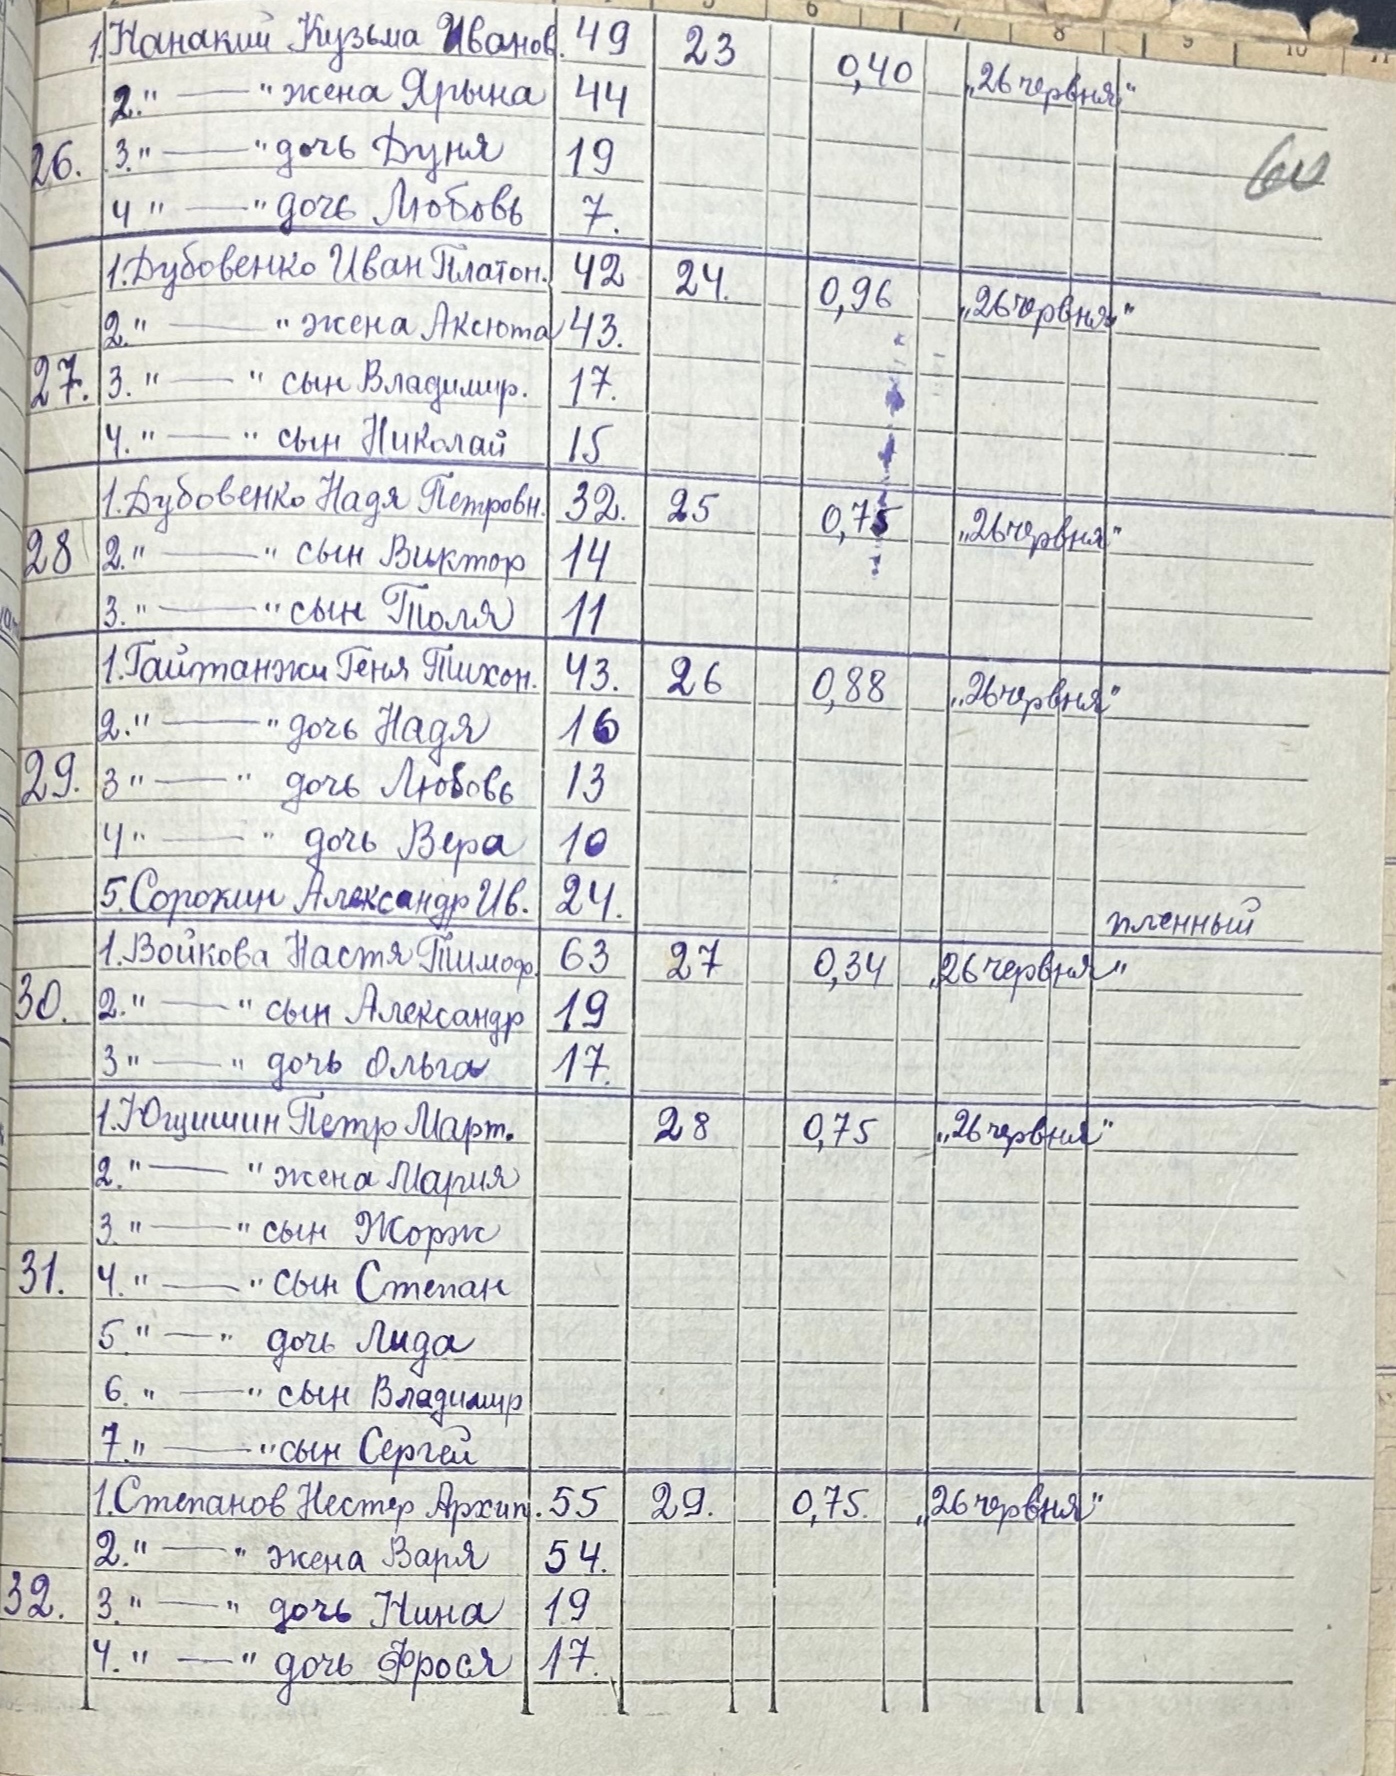 1. Канакий Кузьма Иванов. 49 23 0,40 „26 червня"
2. " — " жена Ярына 44
26. 3. " — " дочь Дуня 19
4 " — " дочь Любовь 7.
1. Дубовенко Иван Платон. 42 24. 0,96 „26 червня"
2. " — " жена Аксюта 43.
27. 3. " — " сын Владимир. 17.
4. " — " сын Николай 15
1. Дубовенко Надя Петровн. 32. 25 0,75 „26 червня"
28 2. " — " сын Виктор 14
3. " — " сын Толя 11
1. Гайтанжи Геня Тихон. 43. 26 0,88 „26 червня"
2. " — " дочь Надя 16
29. 3 " — " дочь Любовь 13
4 " — " дочь Вера 10
5. Сорокин Александр Ив. 24. пленный
1. Войкова Настя Тимоф. 63 27 0,34 „26 червня"
30. 2. " — " сын Александр 19
3 " — " дочь Ольга 17.
1. Югишин Петр Март. 28 0,75 „26 червня"
2. " — " жена Мария
3. " — " сын Жорж
31. 4. " — " сын Степан
5 " — " дочь Лида
6. " — " сын Владимир
7. " — " сын Сергей
1. Степанов Нестер Архип. 55 29. 0,75. „26 червня"
2. " — " жена Варя 54.
32. 3. " — " дочь Нина 19
4. " — " дочь Фрося 17.